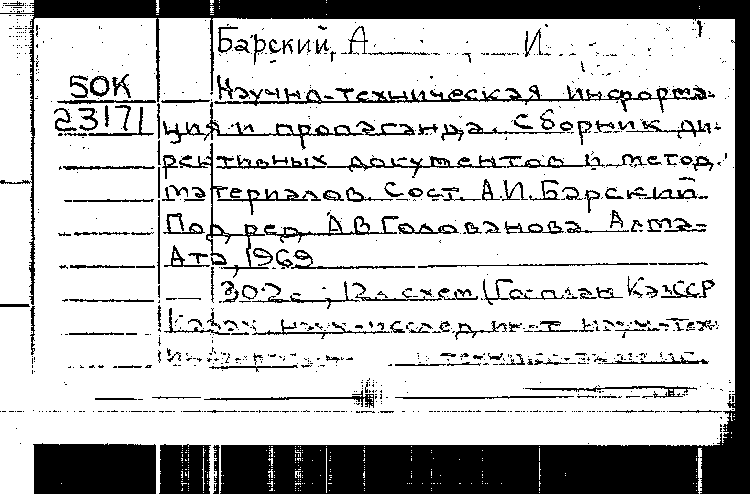 Барский, А. И.
50К
23171
Научно-техническая информа-
ция и пропаганда. Сборник ди-
рективных документов и метод.
материалов. Сост. А.И. Барский
Под ред. А В Голованова. Алма-
Ата, 1969
302с; 12л схем (Госплан КазССР
Казах. науч-исслед. ин-т науч-техн